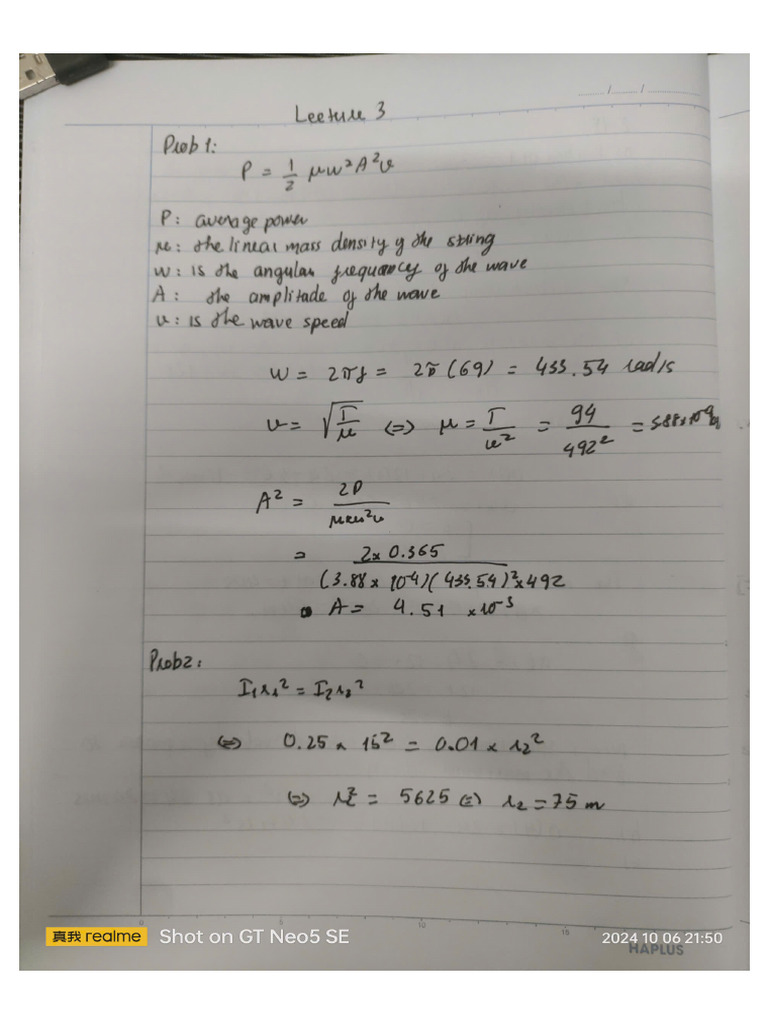 Lecture 3
Prob 1:
P = 1/2 μw²A²v
P: average power
μ: the linear mass density of the string
w: is the angular frequency of the wave
A: the amplitude of the wave
v: is the wave speed
w = 2πf = 2π(69) = 433.54 rad/s
v = √(T/μ) <=> μ = T/v² = 94/492² =
A² = 2P/μw²v
= 2x 0.365 / (3.88 x 10⁻⁴)(433.54)²x492
A = 4.51 x10⁻³
Prob2:
I₁r₁² = I₂r₂²
<=> 0.25 x 15² = 0.01 x r₂²
<=> r₂² = 5625 <=> r₂ = 75 m
真我 realme Shot on GT Neo5 SE
2024 10 06 21:50
HAPLUS